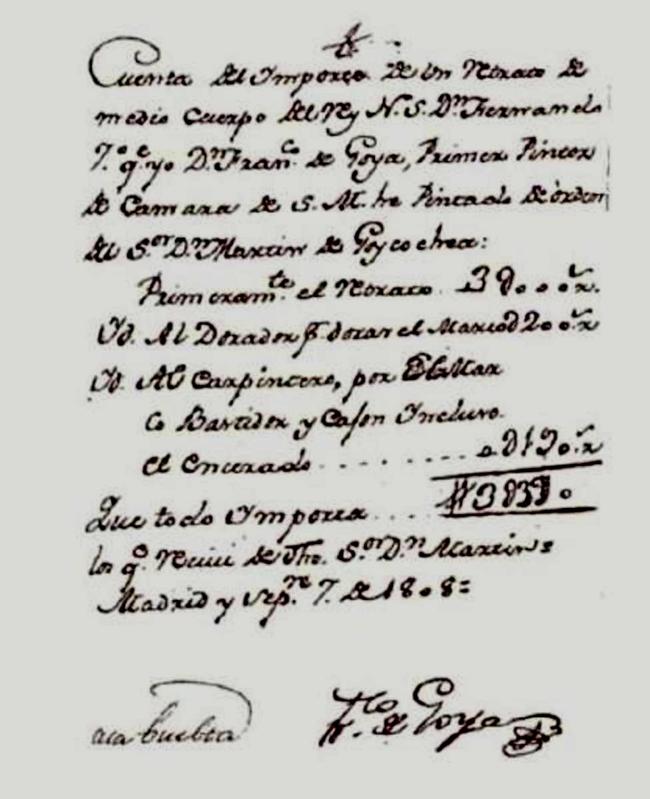 Cuenta del Importe de un Retrato de
medio Cuerpo del Rey N. S. Dn Fernando
7.º qe yo Dn Franco de Goya, Primer Pintor
de Camara de S. M. he Pintado de orden
del Sor Dn Martin de Goycochea:
Primeramte el Retrato
Yd. Al Dorador pr dorar el Marco
Yd. Al Carpintero, por El Mar
co Bastidor y Cajon Ynclusо
el encerado
Que todo Ymporta
los qe Reciví de dho. Sor Dn Martin=
Madrid y Sepre 7. de 1808=
Fco de Goya